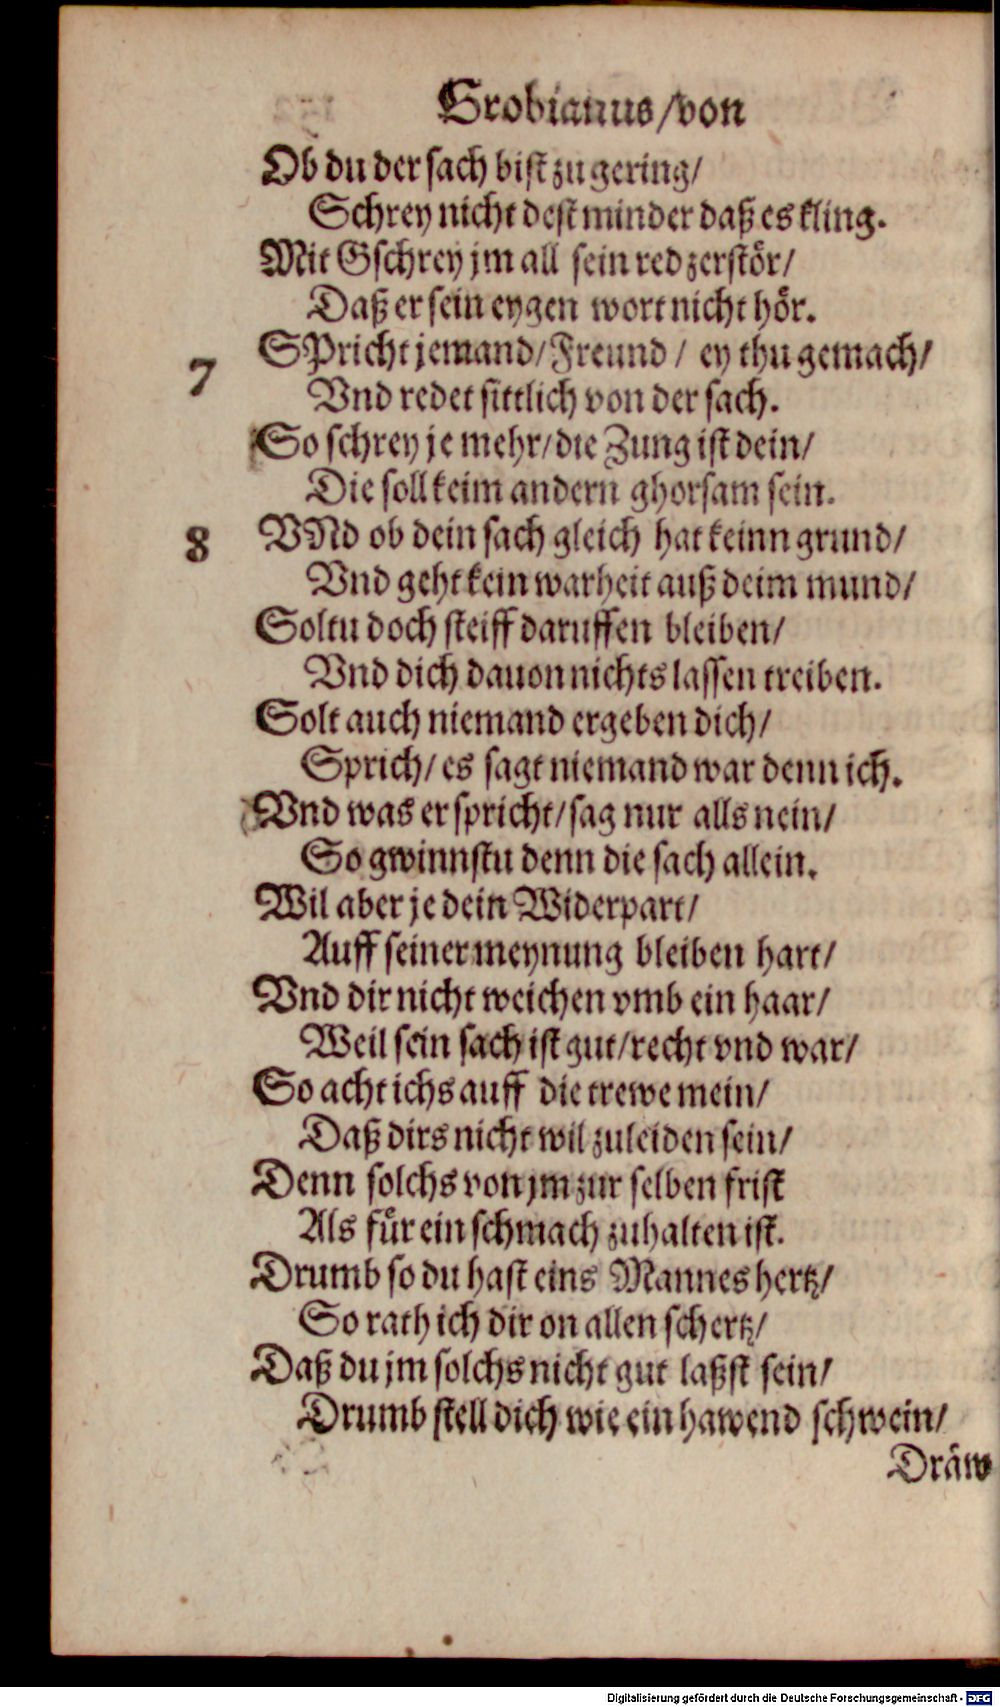 Grobianus/von
Ob du der sach bist zu gering/
Schrey nicht dest minder daß es kling.
Mit Gschrey jm all sein red zerstör/
Daß er sein eygen wort nicht hör.
7 SPricht jemand/Freund/ ey thu gemach/
Vnd redet sittlich von der sach.
So schrey je mehr/die Zung ist dein/
Die soll keim andern ghorsam sein.
8 VNd ob dein sach gleich hat keinn grund/
Vnd geht kein warheit auß deim mund/
Soltu doch steiff daruffen bleiben/
Vnd dich dauon nichts lassen treiben.
Solt auch niemand ergeben dich/
Sprich/es sagt niemand war denn ich.
Vnd was er spricht/sag nur alls nein/
So gwinnstu denn die sach allein.
Wil aber je dein Widerpart/
Auff seiner meynung bleiben hart/
Vnd dir nicht weichen vmb ein haar/
Weil sein sach ist gut/recht vnd war/
So acht ichs auff die trewe mein/
Daß dirs nicht wil zuleiden sein/
Denn solchs von jm zur selben frist
Als für ein schmach zuhalten ist.
Drumb so du hast eins Mannes hertz/
So rath ich dir on allen schertz/
Daß du jm solchs nicht gut laßst sein/
Drumb stell dich wie ein hawend schwein/
Dräw
Digitalisierung gefördert durch die Deutsche Forschungsgemeinschaft - DFG